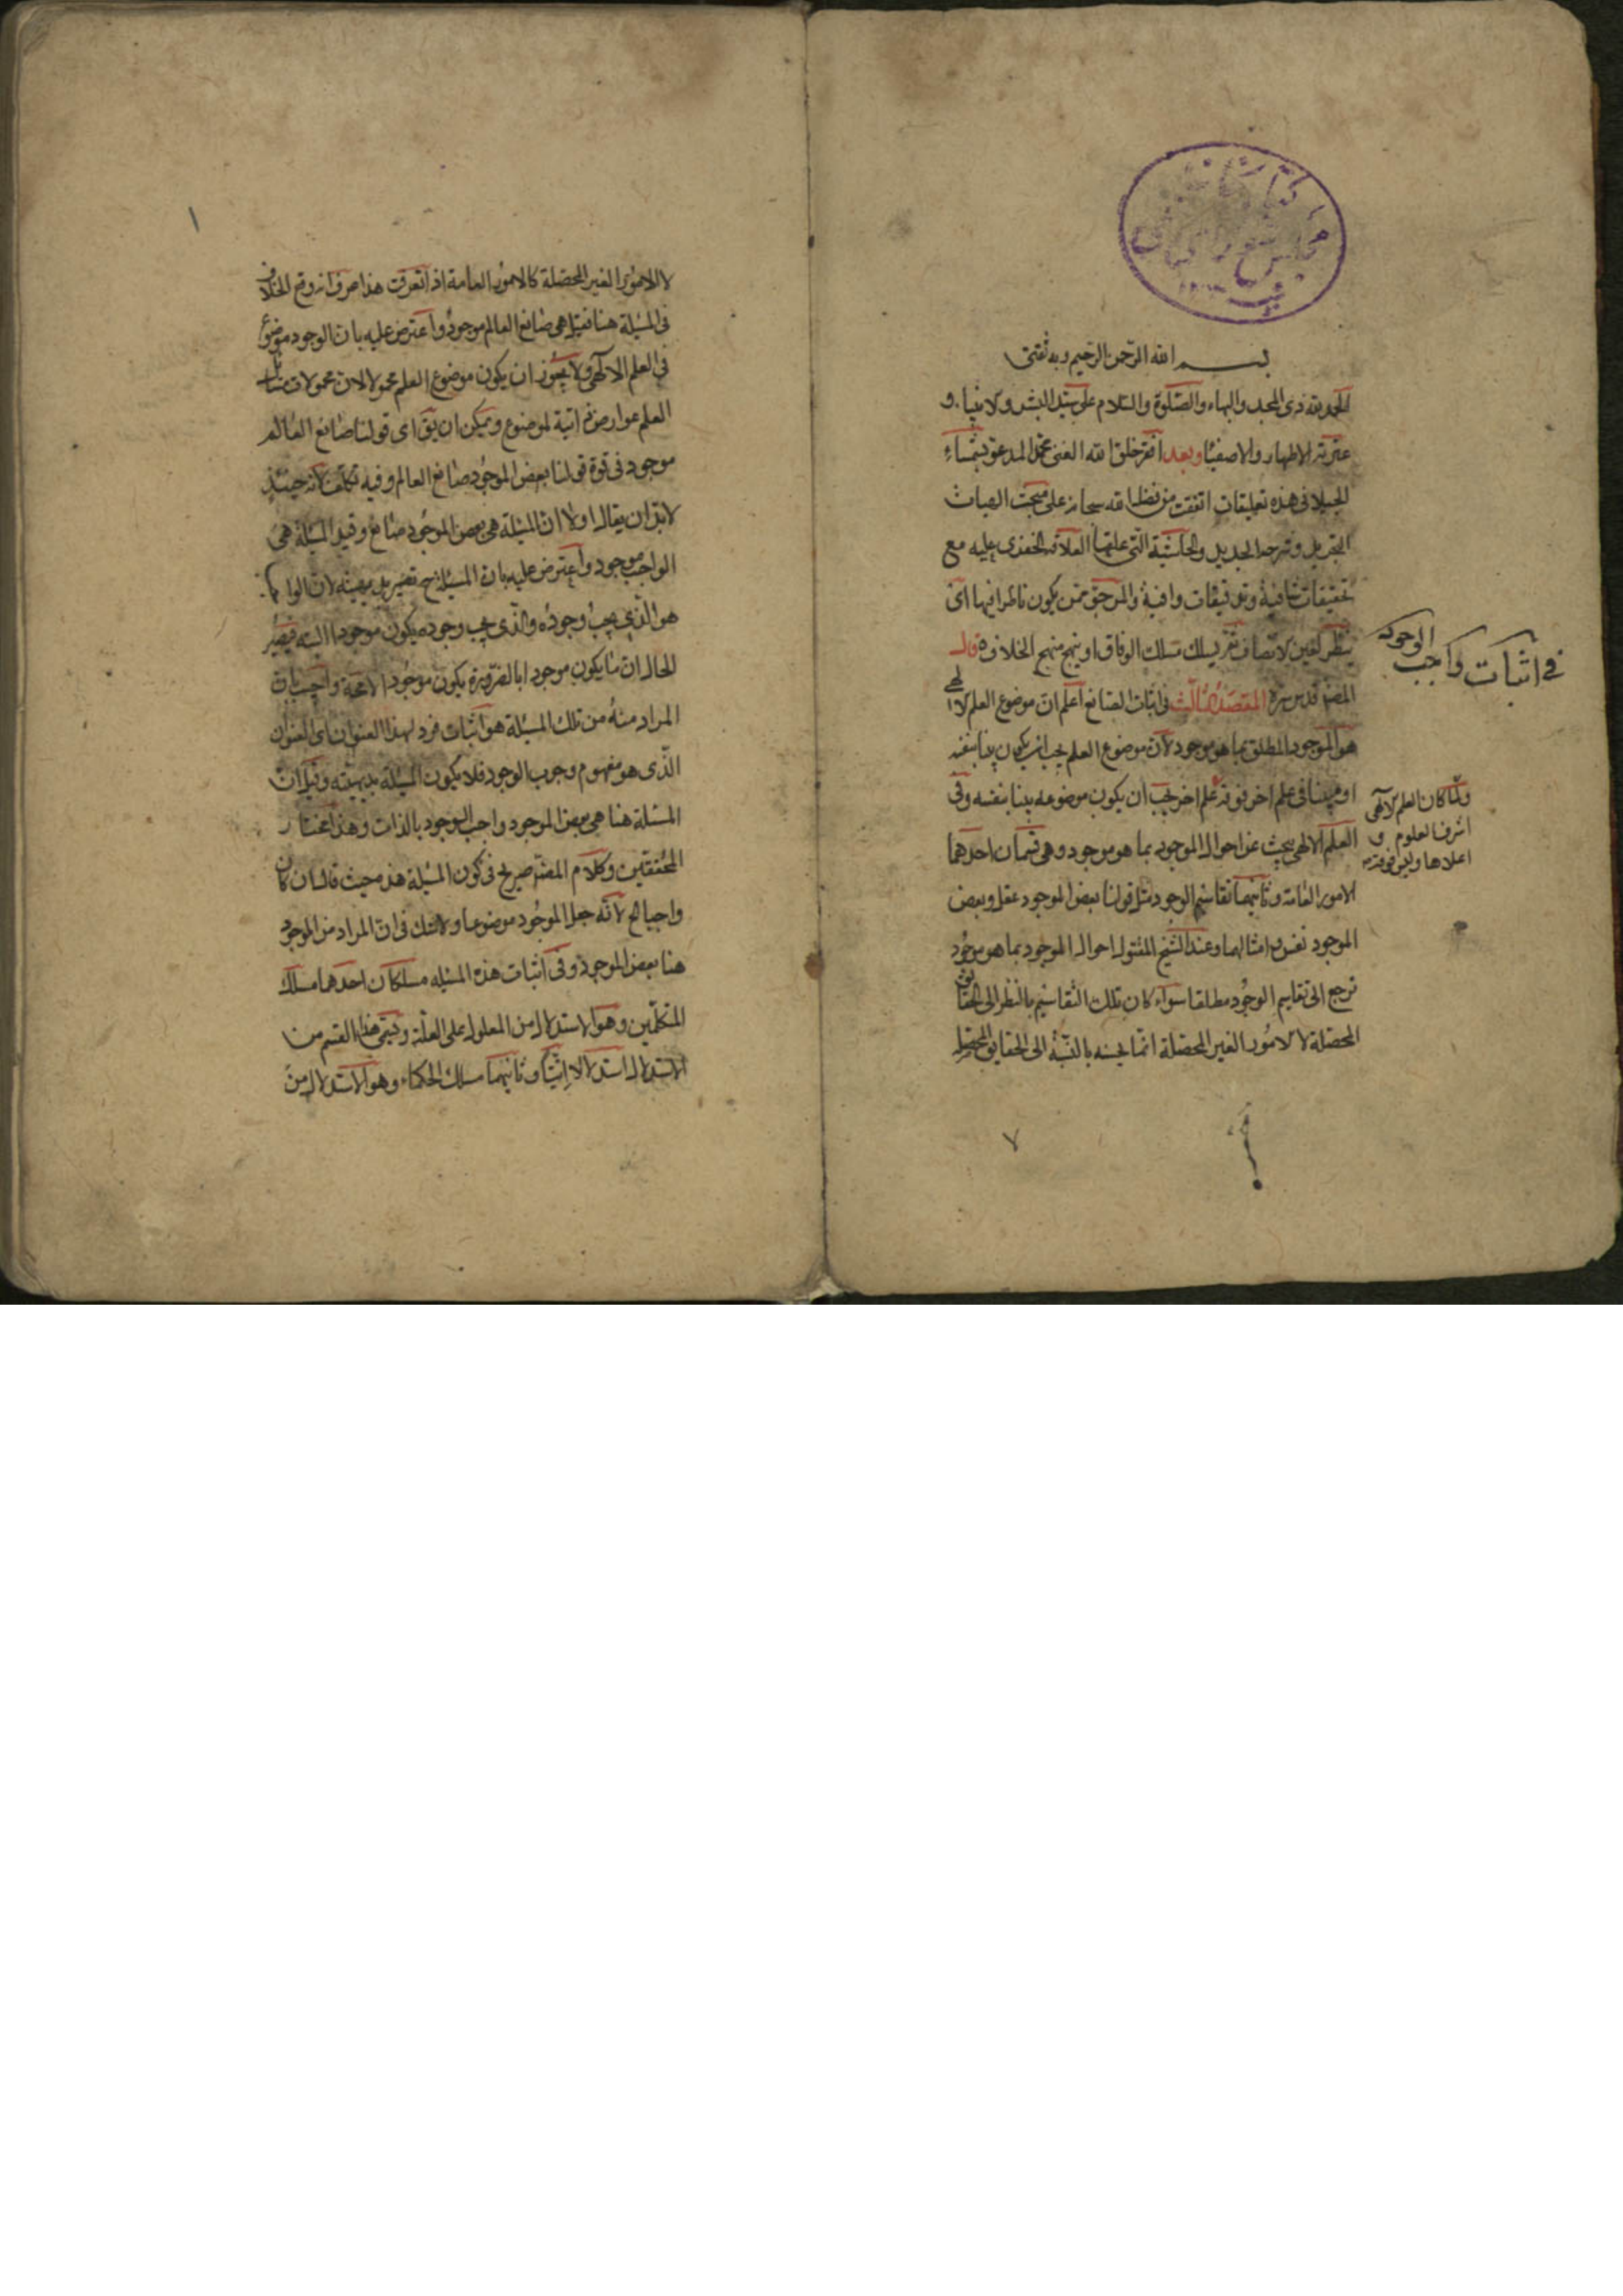 كتابخانه
مجلس شورای ملی
بسم الله الرحمن الرحيم وبه ثقتى
الحمد لله ذى المجد والبهاء والصلوة والسلام على سيد البشر والانبياء و
عترته الاطهار والاصفيا وبعد افقر خلق الله الغنى محمد المدعو بشمساء
الجيلانى هذه تعليقات اتفقت من فضل الله سبحانه على مبحث الهيات
التجريد وشرحه الجديد والحاشية التى علقها العلامة الخفرى عليه مع
تحقيقات شافية وتوفيقات وافية والمرجو ممن يكون ناظرا فيها ان
ينظر بعين الانصاف ثم يسلك مسلك الوفاق او ينهج منهج الخلاف قال
المصنف قدس سره المقصد الثالث فى اثبات الصانع اعلم ان موضوع العلم الالهى
هو الموجود المطلق بما هو موجود لان موضوع العلم يجب ان يكون بينا بنفسه
او مبينا فى علم اخر فوقه علم اخر يجب ان يكون موضوعه بينا بنفسه وفى
العلم الالهى يبحث عن احوال الموجود بما هو موجود وهى قسمان احدهما
الامور العامة وثانيهما تقاسيم الوجود مثل قولنا بعض الموجود عقل وبعض
الموجود نفس وامثالهما وعند الشيخ المقتول احوال الموجود بما هو موجود
ترجع الى تقاسيم الوجود مطلقا سواء كان تلك التقاسيم بالنظر الى الحقايق
المحصلة لا لامور الغير المحصلة انما بالنسبة الى الحقايق المحصلة
فى اثبات واجب الوجود
ولما كان العلم الالهى
اشرف العلوم و
اعلاها وليس فوقه
٧
١
لا الامور الغير المحصلة كالامور العامة اذا تعرفت هذا عرف انه وقع الخلاف
فى المسئلة هنا فقيل هى صانع العالم موجود واعترض عليه بان الوجود موضوع
فى العلم الالهى ولا يجوز ان يكون موضوع العلم محمولا لان محمولات مسائل
العلم عوارض ذاتية لموضوع ويمكن ان يق اى قولنا صانع العالم
موجود فى قوة قولنا بعض الموجود صانع العالم وفيه تكلف لانه حينئذ
لابد ان يقال اولا ان المسئلة هى بعض الموجود صانع وقيل المسئلة هى
الواجب موجود واعترض عليه بان المسئلة ح تصير بديهية لان الواجب
هو الذى يجب وجوده والذى يجب وجوده يكون موجودا البته فيصير
الحال ان ما يكون موجودا بالضرورة يكون موجودا لا محة واجيب بان
المراد منه من تلك المسئلة هو اثبات فرد لهذا العنوان اى العنوان
الذى هو مفهوم وجوب الوجود فلا يكون المسئلة بديهية وقيل ان
المسئلة هنا هى بعض الموجود واجب الوجود بالذات وهذا مختار
المحققين وكلام المصنف صريح فى كون المسئلة هذه حيث قال ان كان
واجبا الخ لانه جعل الموجود موضوعا ولاشك فى ان المراد من الموجود
هنا بعض الموجود وفى اثبات هذه المسئله مسلكان احدهما مسلك
المتكلمين وهو الاستدلال من المعلول على العلة ويسمى هذا القسم من
الاستدلال استدلالا انيا وثانيهما مسلك الحكماء وهو الاستدلال من